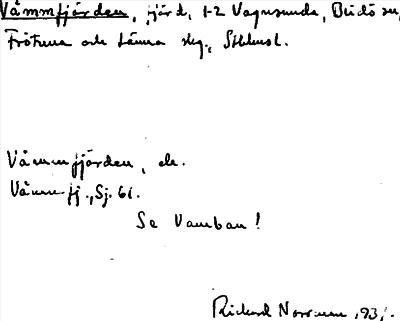 Vämmfjärden, fjärd, 1-2 Vagnsunda, Blidö sn,
Frötuna och Länna skg., Sthlmsl.
Vämmfjärden, ek.
Vämmfj., Sj. 61.
Se Vamban!
Rickard Norrman, 193.